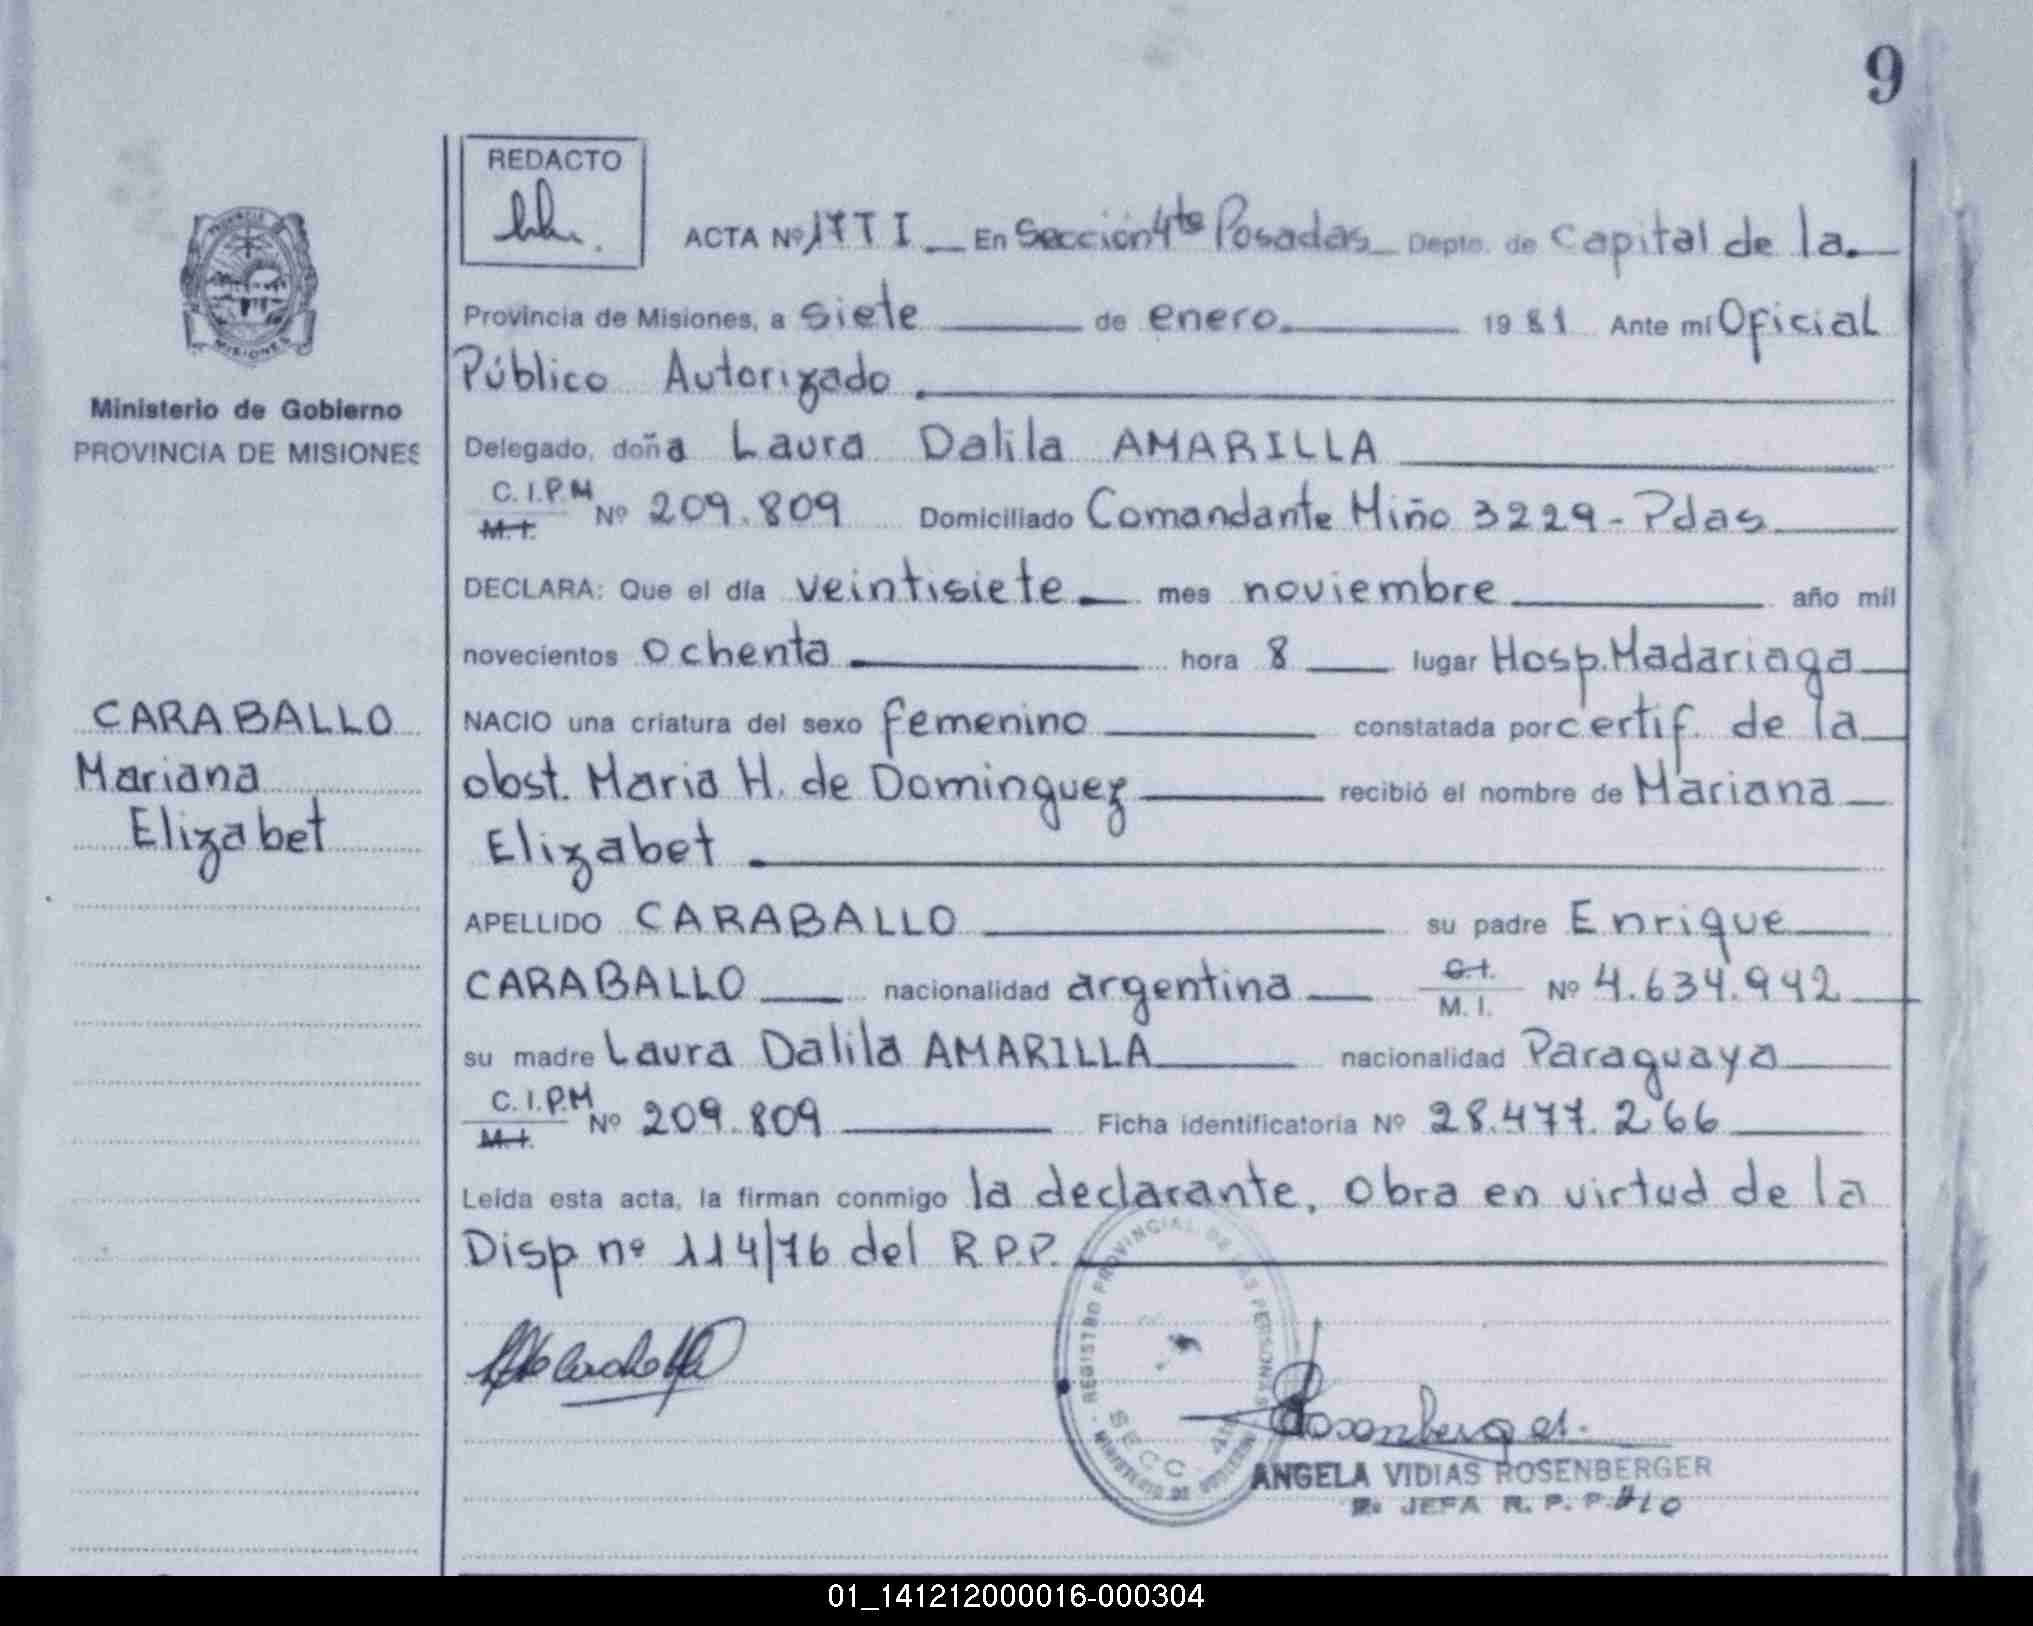 9
REDACTO
ACTA Nº 17 T I En Sección 4ta Posadas Depto. de Capital de la
Provincia de Misiones, a siete de enero 19 81 Ante mí Oficial
Público Autorizado
PROVINCIA
MISIONES
Ministerio de Gobierno
PROVINCIA DE MISIONES
Delegado, doña Laura Dalila AMARILLA
C.I.P.M
M.I. Nº 209.809 Domiciliado Comandante Miño 3229 - Pdas
DECLARA: Que el día veintisiete mes noviembre año mil
novecientos ochenta hora 8 lugar Hosp. Madariaga
CARABALLO
Mariana
Elizabet
NACIO una criatura del sexo femenino constatada por certif. de la
obst. Maria H. de Dominguez recibió el nombre de Mariana
Elizabet
APELLIDO CARABALLO su padre Enrique
CARABALLO nacionalidad argentina C.I.
M.I. Nº 4.634.942
su madre Laura Dalila AMARILLA nacionalidad Paraguaya
C.I.P.M
M.I. Nº 209.809 Ficha identificatoria Nº 28.477.266
Leída esta acta, la firman conmigo la declarante, Obra en virtud de la
Disp nº 114/76 del R.P.P.
REGISTRO PROVINCIAL DE LAS PERSONAS
SECC. 4ta
MINISTERIO DE GOBIERNO
Rosenberger
ANGELA VIDIAS ROSENBERGER
JEFA R. P. P.
01_141212000016-000304